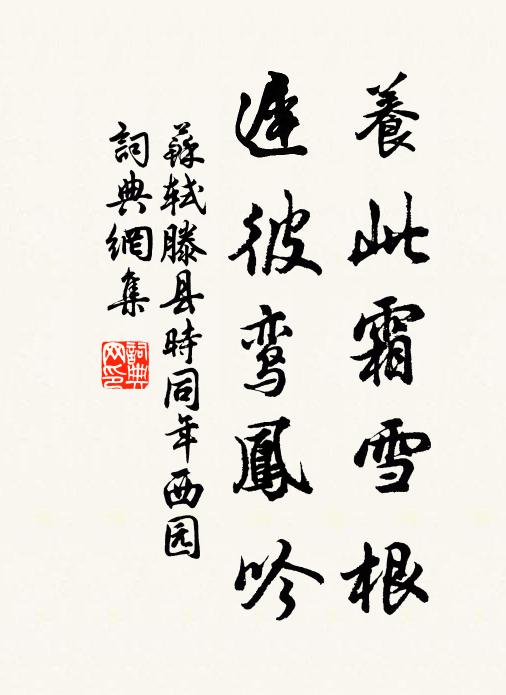 養此霜雪根
遲彼鸾鳳吟
蘇轼滕县時同年西园
詞典網集
詞典网印